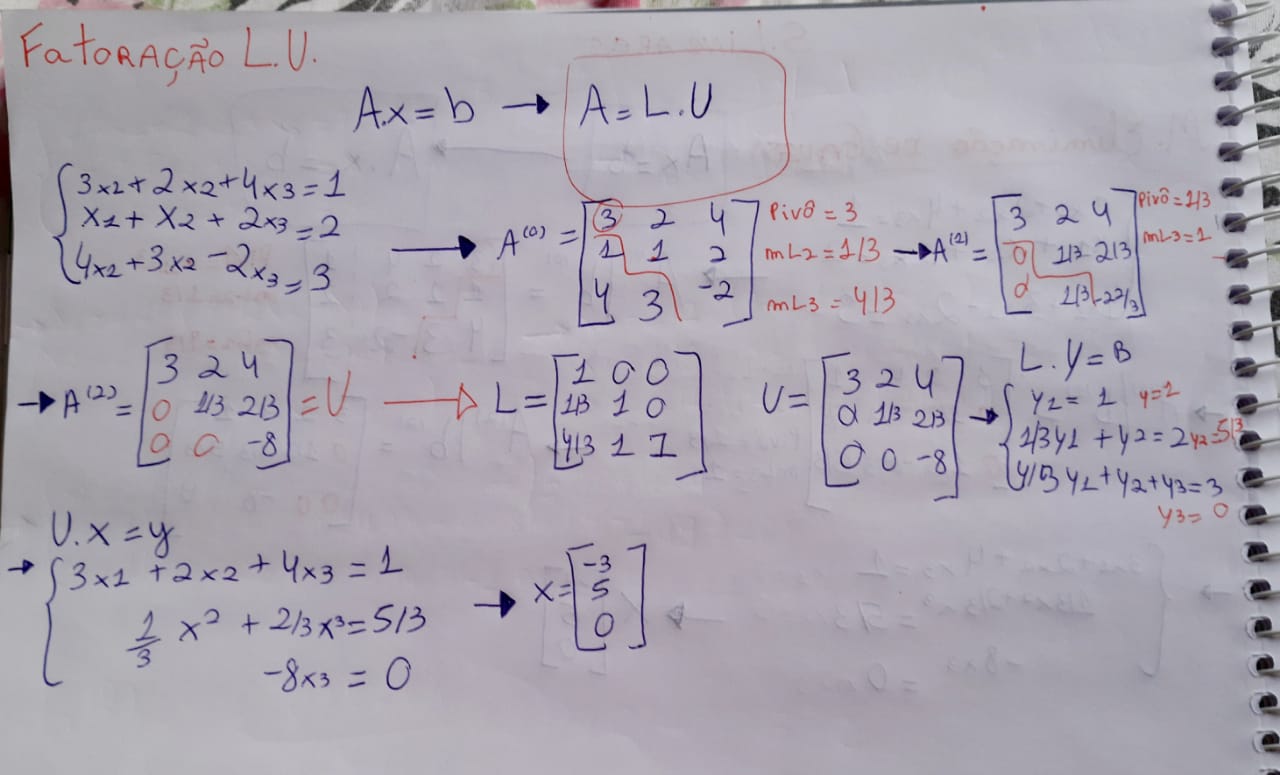 Fatoração L.U.
A.x = b → A = L.U
3x1 + 2x2 + 4x3 = 1
x1 + x2 + 2x3 = 2
4x1 + 3x2 - 2x3 = 3
→ A(0) = [3 2 4
1 1 2
4 3 -2]
Pivô = 3
mL2 = 1/3
mL3 = 4/3
→ A(1) = [3 2 4
0 1/3 2/3
0 1/3 -22/3]
Pivô = 1/3
mL3 = 1
→ A(2) = [3 2 4
0 1/3 2/3
0 0 -8] = U
→ L = [1 0 0
1/3 1 0
4/3 1 1]
U = [3 2 4
0 1/3 2/3
0 0 -8]
→ L.y = B
y1 = 1 y=1
1/3y1 + y2 = 2 y2=5/3
4/3 y1 + y2 + y3 = 3
y3 = 0
U.x = y
→ 3x1 + 2x2 + 4x3 = 1
1/3 x² + 2/3x³ = 5/3
-8x3 = 0
→ x = [-3
5
0]